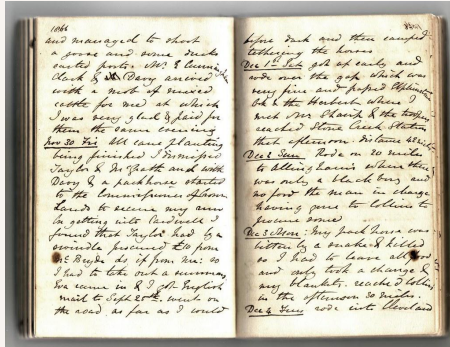 1866
and managed to shoot
a goose and some ducks
Mr E Cunningham
Clark & Davy arrived
with a mob of mixed
cattle for me at which
I was very glad & paid for
them the same evening
Nov 30 Fri All cane planting
being finished I dismissed
Taylor & and with
Davy & a packhorse started
to the Commissioner of Crown
Lands to secure my
In getting into Cardwell I
found that Taylor had by a
swindle procured £10 from
McBryde as if from me: so
I had to take out a summons
Eva came in & I got English
mail to Sept 20th. went on
the road as far as I could
before dark and then camped
tethering the horses
Dec 1st Sat got up early and
rode over the gap which was
very fine and passed
& the Herbert where I
met Mr & the troopers
reached Stone Creek Station
that afternoon. distance 42 miles
Dec 2 Sun Rode on 20 miles
to where there
was only a black boy and
no food the man in charge
having gone to Collins to
procure some
Dec 3 Mon: My pack horse was
bitten by a snake & killed
so I had to leave all food
and only took a change &
my blankets. reached Collins
in the afternoon 30 miles.
Dec 4 Tues rode into Cleveland